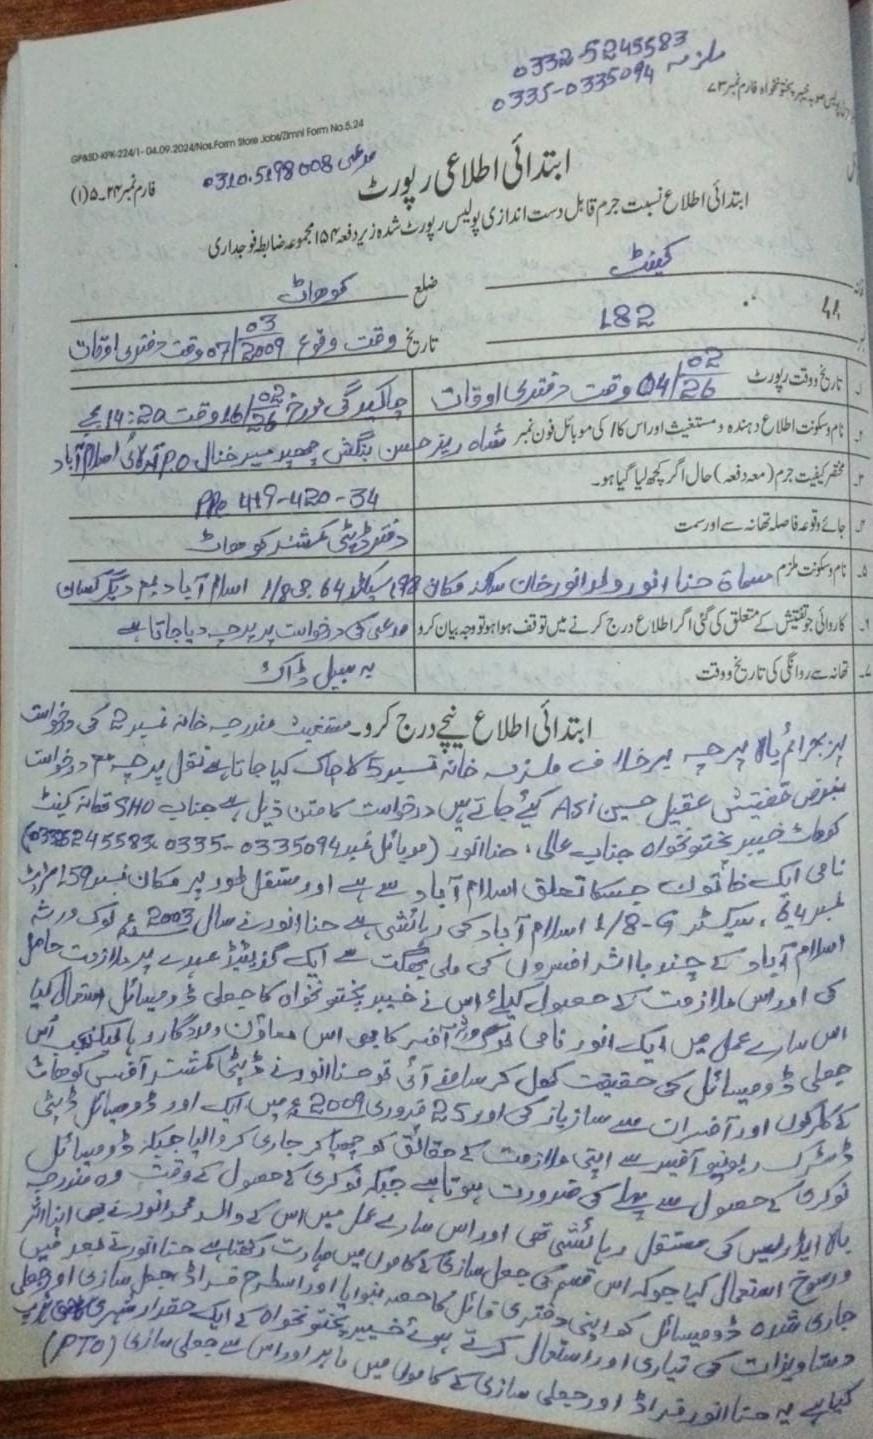 0332-5245583
0335-0335094 ملزمہ
فارم نمبر ۷۳
GP&SD-KPK-224/1- 04.09.2024/Nos.Form Store Jobs/Zimni Form No.5.24
مدعی 0310-5198008
فارم نمبر ۲۴۔۵(۱)
ابتدائی اطلاعی رپورٹ
ابتدائی اطلاع نسبت جرم قابل دست اندازی پولیس رپورٹ شدہ زیر دفعہ ۱۵۴ مجموعہ ضابطہ فوجداری
کینٹ ضلع کوھاٹ
182 تاریخ وقت وقوع 07/03/2009 وقت دفتری اوقات
۱۔ تاریخ و وقت رپورٹ 04/02/26 وقت دفتری اوقات چاکیدگی مورخہ 16/02/26 وقت 14:20 بجے
۲۔ نام وسکونت اطلاع دھندہ و مستغیث اور اس کا / کی موبائل فون نمبر شاہ ریز حسن بنگش اسلام آباد
۳۔ مختصر کیفیت جرم (معہ دفعہ) حال اگر کچھ لیا گیا ہو۔ PPC 419-420-34
۴۔ جائے وقوعہ فاصلہ تھانہ سے اور سمت دفتر ڈپٹی کمشنر کوھاٹ
۵۔ نام وسکونت ملزم مسماۃ حنا انور ولد انور خان اسلام آباد
۶۔ کاروائی جو تفتیش کے متعلق کی گئی اگر اطلاع درج کرنے میں توقف ہوا ہو تو وجہ بیان کرو مدعی کی درخواست پر پرچہ دیا جاتا ہے
۷۔ تھانہ سے روانگی کی تاریخ و وقت بہ سبیل ڈاک
ابتدائی اطلاع نیچے درج کرو۔ مستغیث مندرجہ خانہ نمبر 2 کی درخواست
پر بجرائم بالا پرچہ برخلاف ملزمہ خانہ نمبر 5 کا چاک کیا جاتا ہے نقل پرچہ مع درخواست
بغرض تفتیش عقیل حسین ASI کیئے جاتے ہیں درخواست کا متن ذیل ہے جناب SHO تھانہ کینٹ
کوھاٹ خیبر پختونخواہ جناب عالی، حنا انور (موبائل نمبر 0335-0335094، 03325245583)
نامی ایک خاتون جسکا تعلق اسلام آباد سے ہے اور مستقل طور پر مکان نمبر 159
نمبر 64، سیکٹر G-8/1 اسلام آباد کی رہائشی ہے حنا انور نے سال 2003ء لوک ورثہ
اسلام آباد کے چند بااثر افسروں کی ملی بھگت سے ایک گزیٹیڈ عہدے پر ملازمت حاصل
کی اور اس ملازمت کے حصول کیلئے اس نے خیبر پختونخواہ کا جعلی ڈومیسائل استعمال کیا
اس سارے عمل میں ایک انور نامی آفسر کا بھی اس معاون ومددگار رہا لیکن جب اُس
جعلی ڈومیسائل کی حقیقت کھل کر سامنے آئی تو حنا انور نے ڈپٹی کمشنر آفیس کوھاٹ
کے کلرکوں اور آفسران سے سازباز کی اور 25 فروری 2009ء میں ایک اور ڈومیسائل ڈپٹی
ڈسٹرکٹ ریونیو آفیسر سے اپنی ملازمت کے حقائق کو چھپا کر جاری کروالیا جبکہ ڈومیسائل
نوکری کے حصول سے پہلے کی ضرورت ہوتا ہے جبکہ نوکری کے حصول کے وقت وہ مندرجہ
بالا ایڈریس کی مستقل رہائشی تھی اور اس سارے عمل میں اس کے والد محمد انور نے بھی اپنا اثر
ورسوخ استعمال کیا جوکہ اس قسم کی جعل سازی کے کاموں میں مہارت رکھتا ہے حنا انور نے بعد میں
جاری شدہ ڈومیسائل کو اپنی دفتری فائل کا حصہ بنوایا اور اسطرح فراڈ، جعل سازی اور جعلی
دستاویزات کی تیاری اور استعمال کرتے ہوئے خیبر پختونخواہ کے ایک حقدار شہری
کیا ہے یہ حنا انور فراڈ اور جعلی سازی کے کاموں میں ماہر اور اس سے جعلی سازی (PTO)